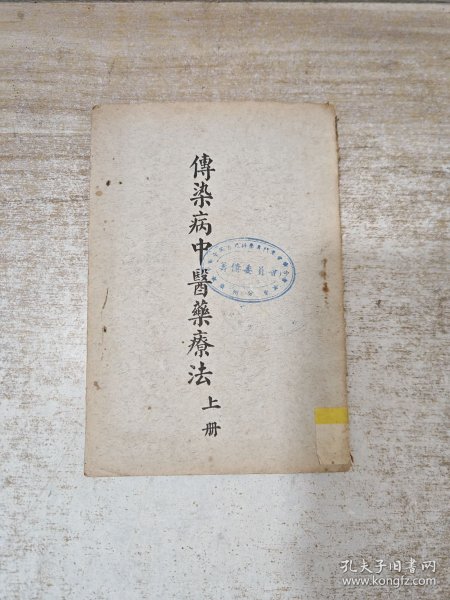 傳染病中醫藥療法 上册
孔夫子旧书网
www.kongfz.com